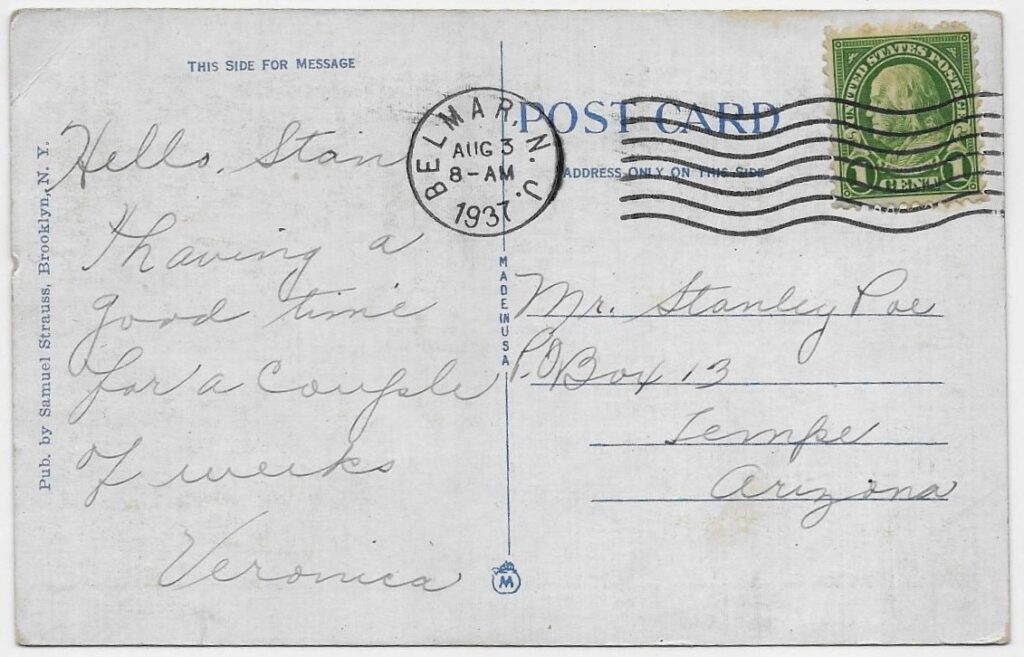 THIS SIDE FOR MESSAGE
Hello, Stan
Having a
good time
for a couple
of weeks
Veronica
Pub. by Samuel Strauss, Brooklyn, N. Y.
BELMAR, N. J.
AUG 3
8-AM
1937
MADE IN USA
M
POST CARD
ADDRESS ONLY ON THIS SIDE
UNITED STATES POSTAGE
1 CENT 1
Mr. Stanley Poe
P.O Box 13
Tempe
Arizona